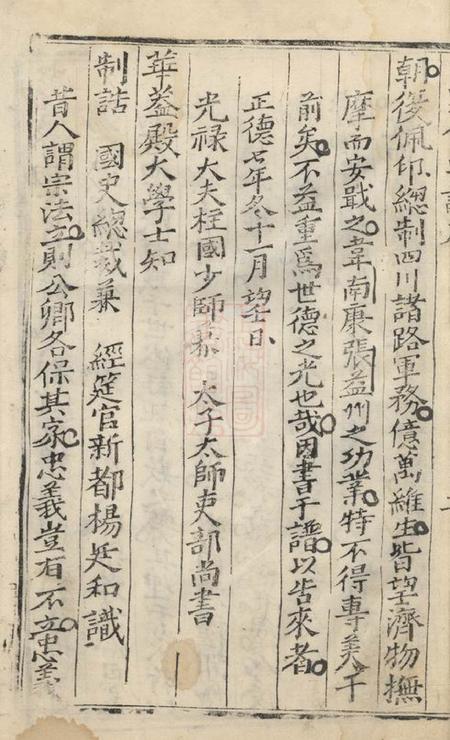 朝後佩印總制四川諸路軍務億萬維生皆望濟物撫
摩而安戢之韋南康張益州之功業特不得專美于
前矣不益重爲世德之光也哉因書于譜以告來者
正德七年冬十一月望日
光禄大夫柱國少師兼　太子太師吏部尚書
華益殿大學士知
制誥　國史總裁兼　經筵官新都楊廷和識
昔人謂宗法立則公卿各保其家忠義豈有不立忠義